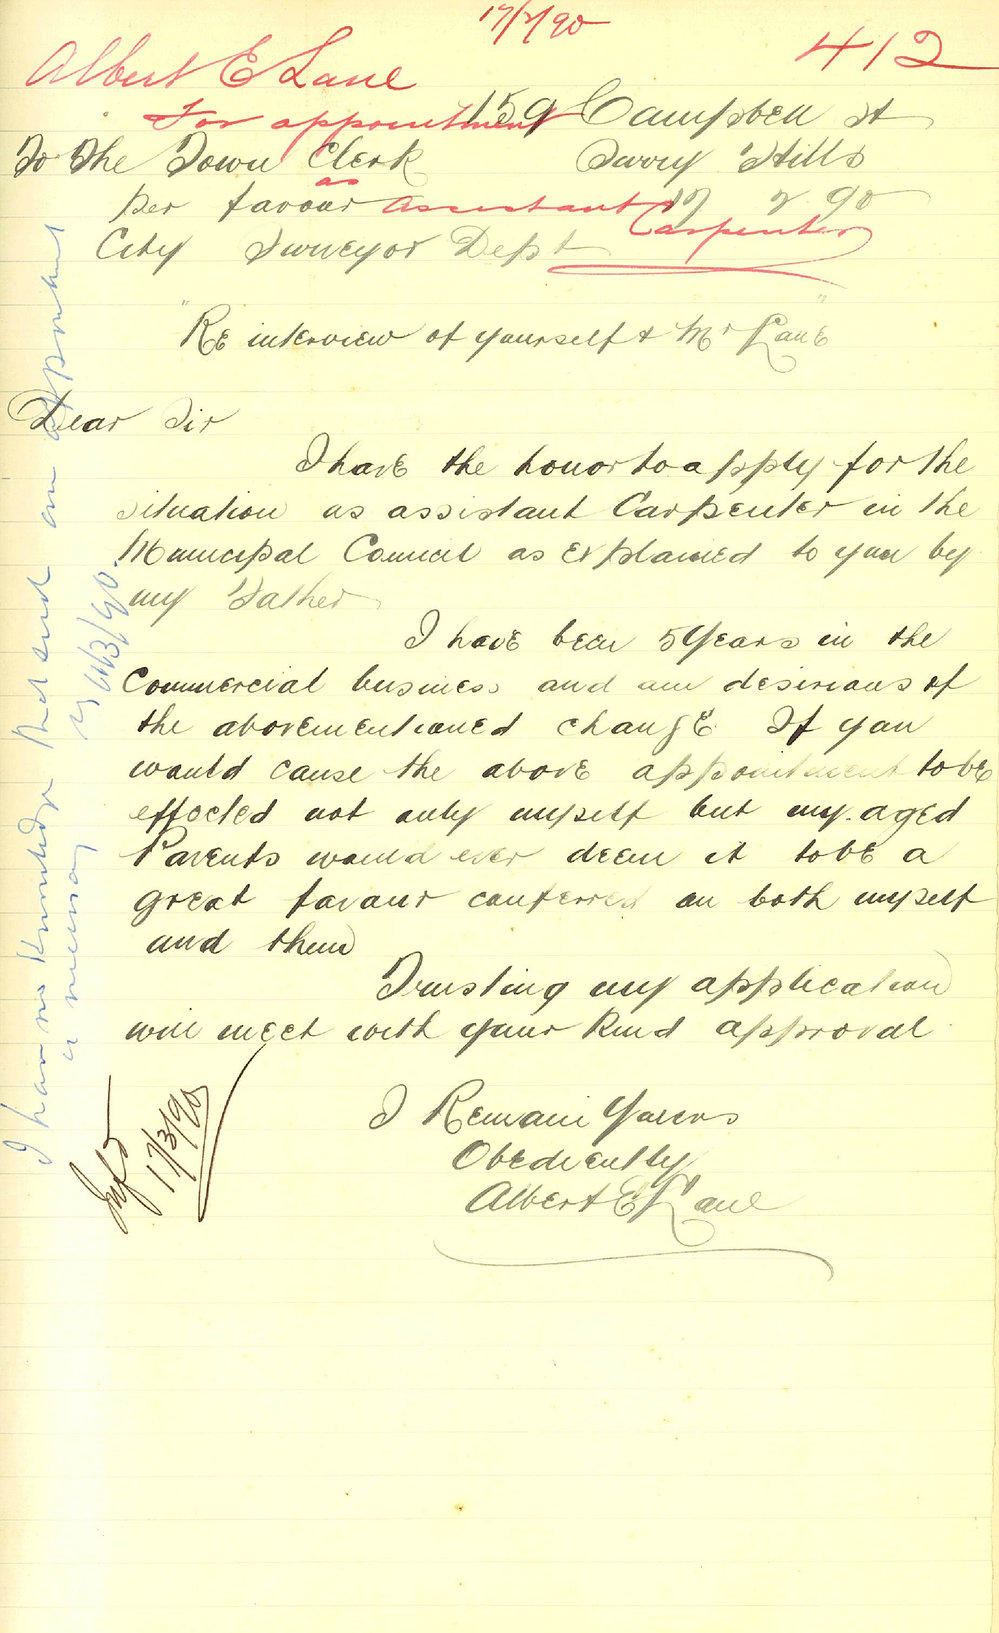 17/2/90
412
Albert E Lane
For appointment
as
Assistant
Carpenter
159 Campbell St
Surry Hills
17 2 90
To The Town Clerk
Per favour
City Surveyor Dept
"Re interview of yourself & Mr Lane"
Dear Sir
I have the honor to apply for the
situation as assistant Carpenter in the
Municipal Council as explained to you by
my Father
I have been 5 Years in the
Commercial business and am desirious of
the abovementioned change. If you
would cause the above appointment to be
effected not only myself but my aged
Parents would ever deem it to be a
great favour conferred on both myself
and them
Trusting my application
will meet with your kind approval
I Remain Yours
Obediently
Albert E Lane
I have no knowledge that such an
is necessary
17/3/90